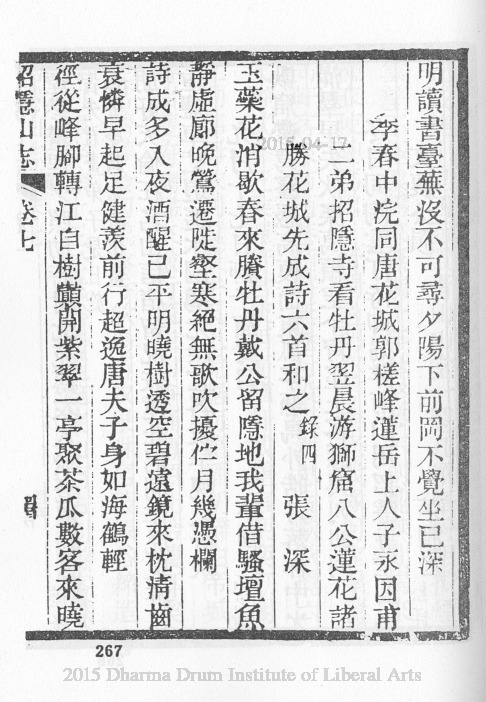 明讀書臺蕪沒不可尋夕陽下前岡不覺坐已深
季春中浣同唐花城郭槎峰蓮岳上人子永因甫
二弟招隱寺看牡丹翌晨游獅窟八公蓮花諸
勝花城先成詩六首和之 錄四 張深
玉蘂花消歇春來賸牡丹戴公留隱地我輩借騷壇魚
靜虛廊晚鶯遷陡壑寒絕無歌吹擾伫月幾憑欄
詩成多入夜酒醒已平明曉樹透空碧遠鏡來枕清齒
衰憐早起足健羨前行超逸唐夫子身如海鶴輕
徑從峰腳轉江自樹顚開紫翠一亭聚茶瓜數客來曉
招隱山志 卷七
267
2015-04-17
2015 Dharma Drum Institute of Liberal Arts